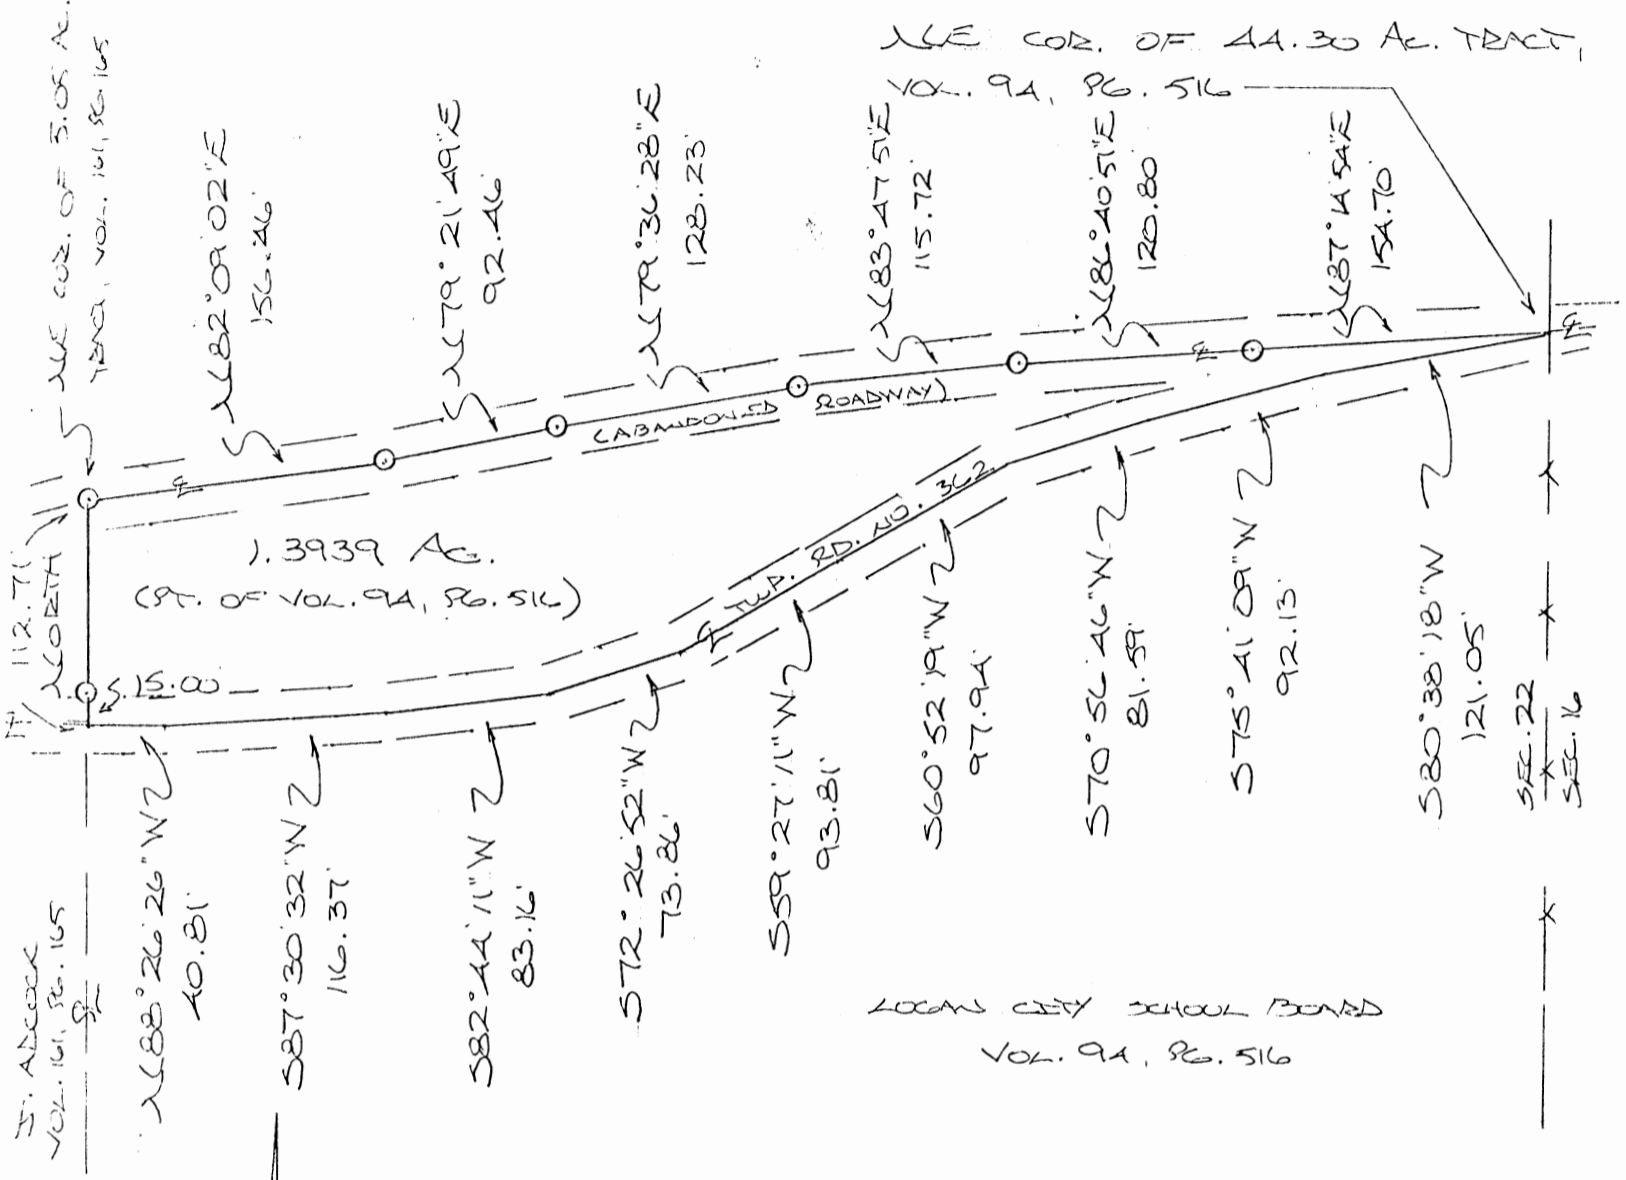 NE COR. OF 44.30 AC. TRACT,
VOL. 94, PG. 516
NE COR. OF 5.05 AC.
TRACT, VOL. 161, PG. 165
N82°09'02"E
156.46'
N79°21'49"E
92.46'
N79°36'28"E
128.23'
N83°47'51"E
115.72'
N86°40'51"E
120.80'
N87°14'54"E
154.70'
℄
℄
℄
(ABANDONED ROADWAY)
TWP. RD. NO. 362
℄
112.71'
NORTH
1.3939 AC.
(PT. OF VOL. 94, PG. 516)
15.00
N88°26'26"W
40.81'
S87°30'32"W
116.37'
S82°44'11"W
83.16'
S72°26'52"W
73.86'
S59°27'11"W
93.81'
S60°52'19"W
97.94'
S70°56'46"W
81.59'
S75°41'09"W
92.13'
S80°38'18"W
121.05'
SEC. 22
SEC. 16
J. ADCOCK
VOL. 161, PG. 165
PL
LOGAN CITY SCHOOL BOARD
VOL. 94, PG. 516